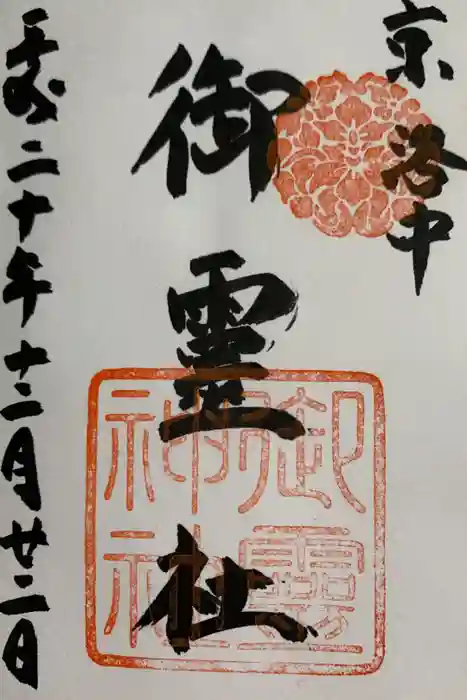 京洛中
御霊社
御霊神社
平成二十年十二月廿二日